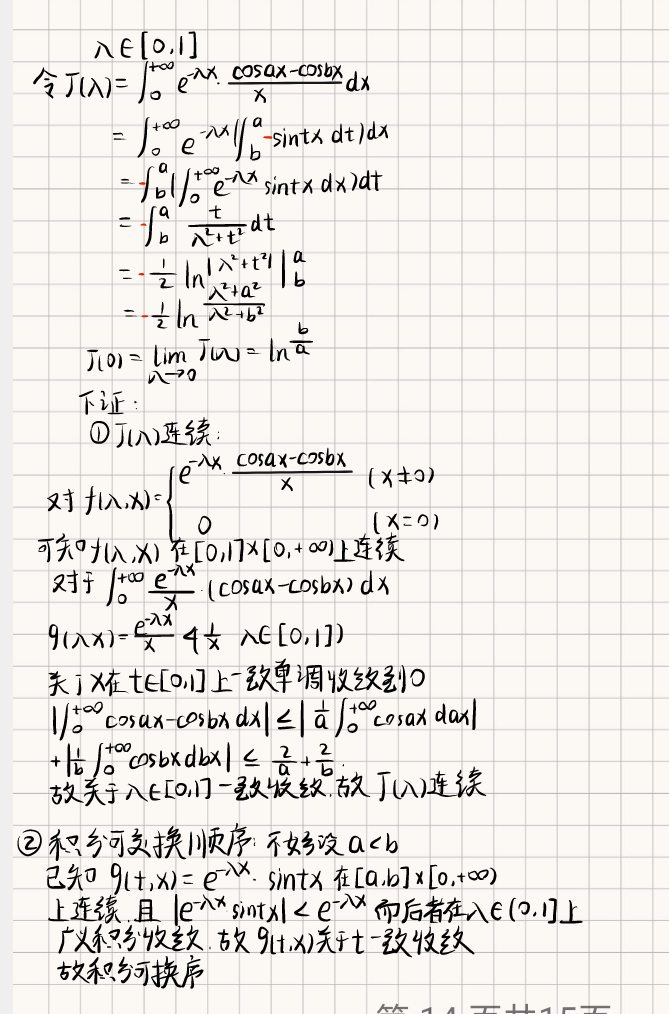 λ∈[0,1]
令J(λ)=∫₀^{+∞} e^{-λx}·(cosax-cosbx)/x dx
=∫₀^{+∞} e^{-λx}(∫_b^a -sintx dt)dx
=-∫_b^a(∫₀^{+∞} e^{-λx} sintx dx)dt
=-∫_b^a t/(λ²+t²) dt
=-1/2 ln|λ²+t²| |_b^a
=-1/2 ln (λ²+a²)/(λ²+b²)
J(0)=lim_{λ→0} J(λ)=ln b/a
下证:
①J(λ)连续:
对f(λ,x)={e^{-λx}·(cosax-cosbx)/x (x≠0)
0 (x=0)
可知f(λ,x)在[0,1]×[0,+∞)上连续
对于∫₀^{+∞} e^{-λx}/x·(cosax-cosbx)dx
g(λx)=e^{-λx}/x ≤ 1/x λ∈[0,1])
关于x在t∈[0,1]上一致单调收敛到0
|∫₀^{+∞}cosax-cosbx dx|≤|1/a ∫₀^{+∞}cosax dax|
+|1/b ∫₀^{+∞}cosbx dbx|≤ 2/a+2/b.
故关于λ∈[0,1]一致收敛.故J(λ)连续
②积分可交换顺序:不妨设a<b
已知g(t,x)=e^{-λx}·sintx在[a,b]×[0,+∞)
上连续.且|e^{-λx}sintx|<e^{-λx}而后者在λ∈(0,1]上
广义积分收敛.故g(t,x)关于t一致收敛
故积分可换序
第14页共15页